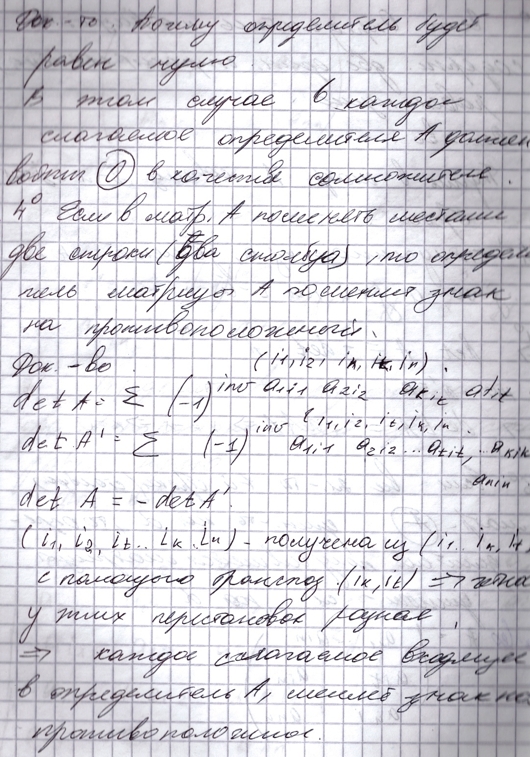 Док-то. Почему определитель будет
равен нулю.
В этом случае в каждое
слагаемое определителя A должен
войти 0 в качестве сомножителя.
4° Если в матр. A поменять местами
две строки (два столбца), то определи
тель матрицы A поменяет знак
на противоположный.
Док.-во. (i1, i2, ik, it, in).
det A = Σ (-1)^inv a1i1 a2i2 akik atit
inv (i1, i2, it, ik, in.
det A' = Σ (-1) a1i1 a2i2 ... atit, .. akik
anin
det A = - det A'.
(i1, i2, it .. ik in) - получена из (i1 .. ik, it
с помощью транспоз. (ik, it) => четна
у этих перестановок разная,
=> каждое слагаемое входящее
в определитель A, меняет знак на
противоположное.